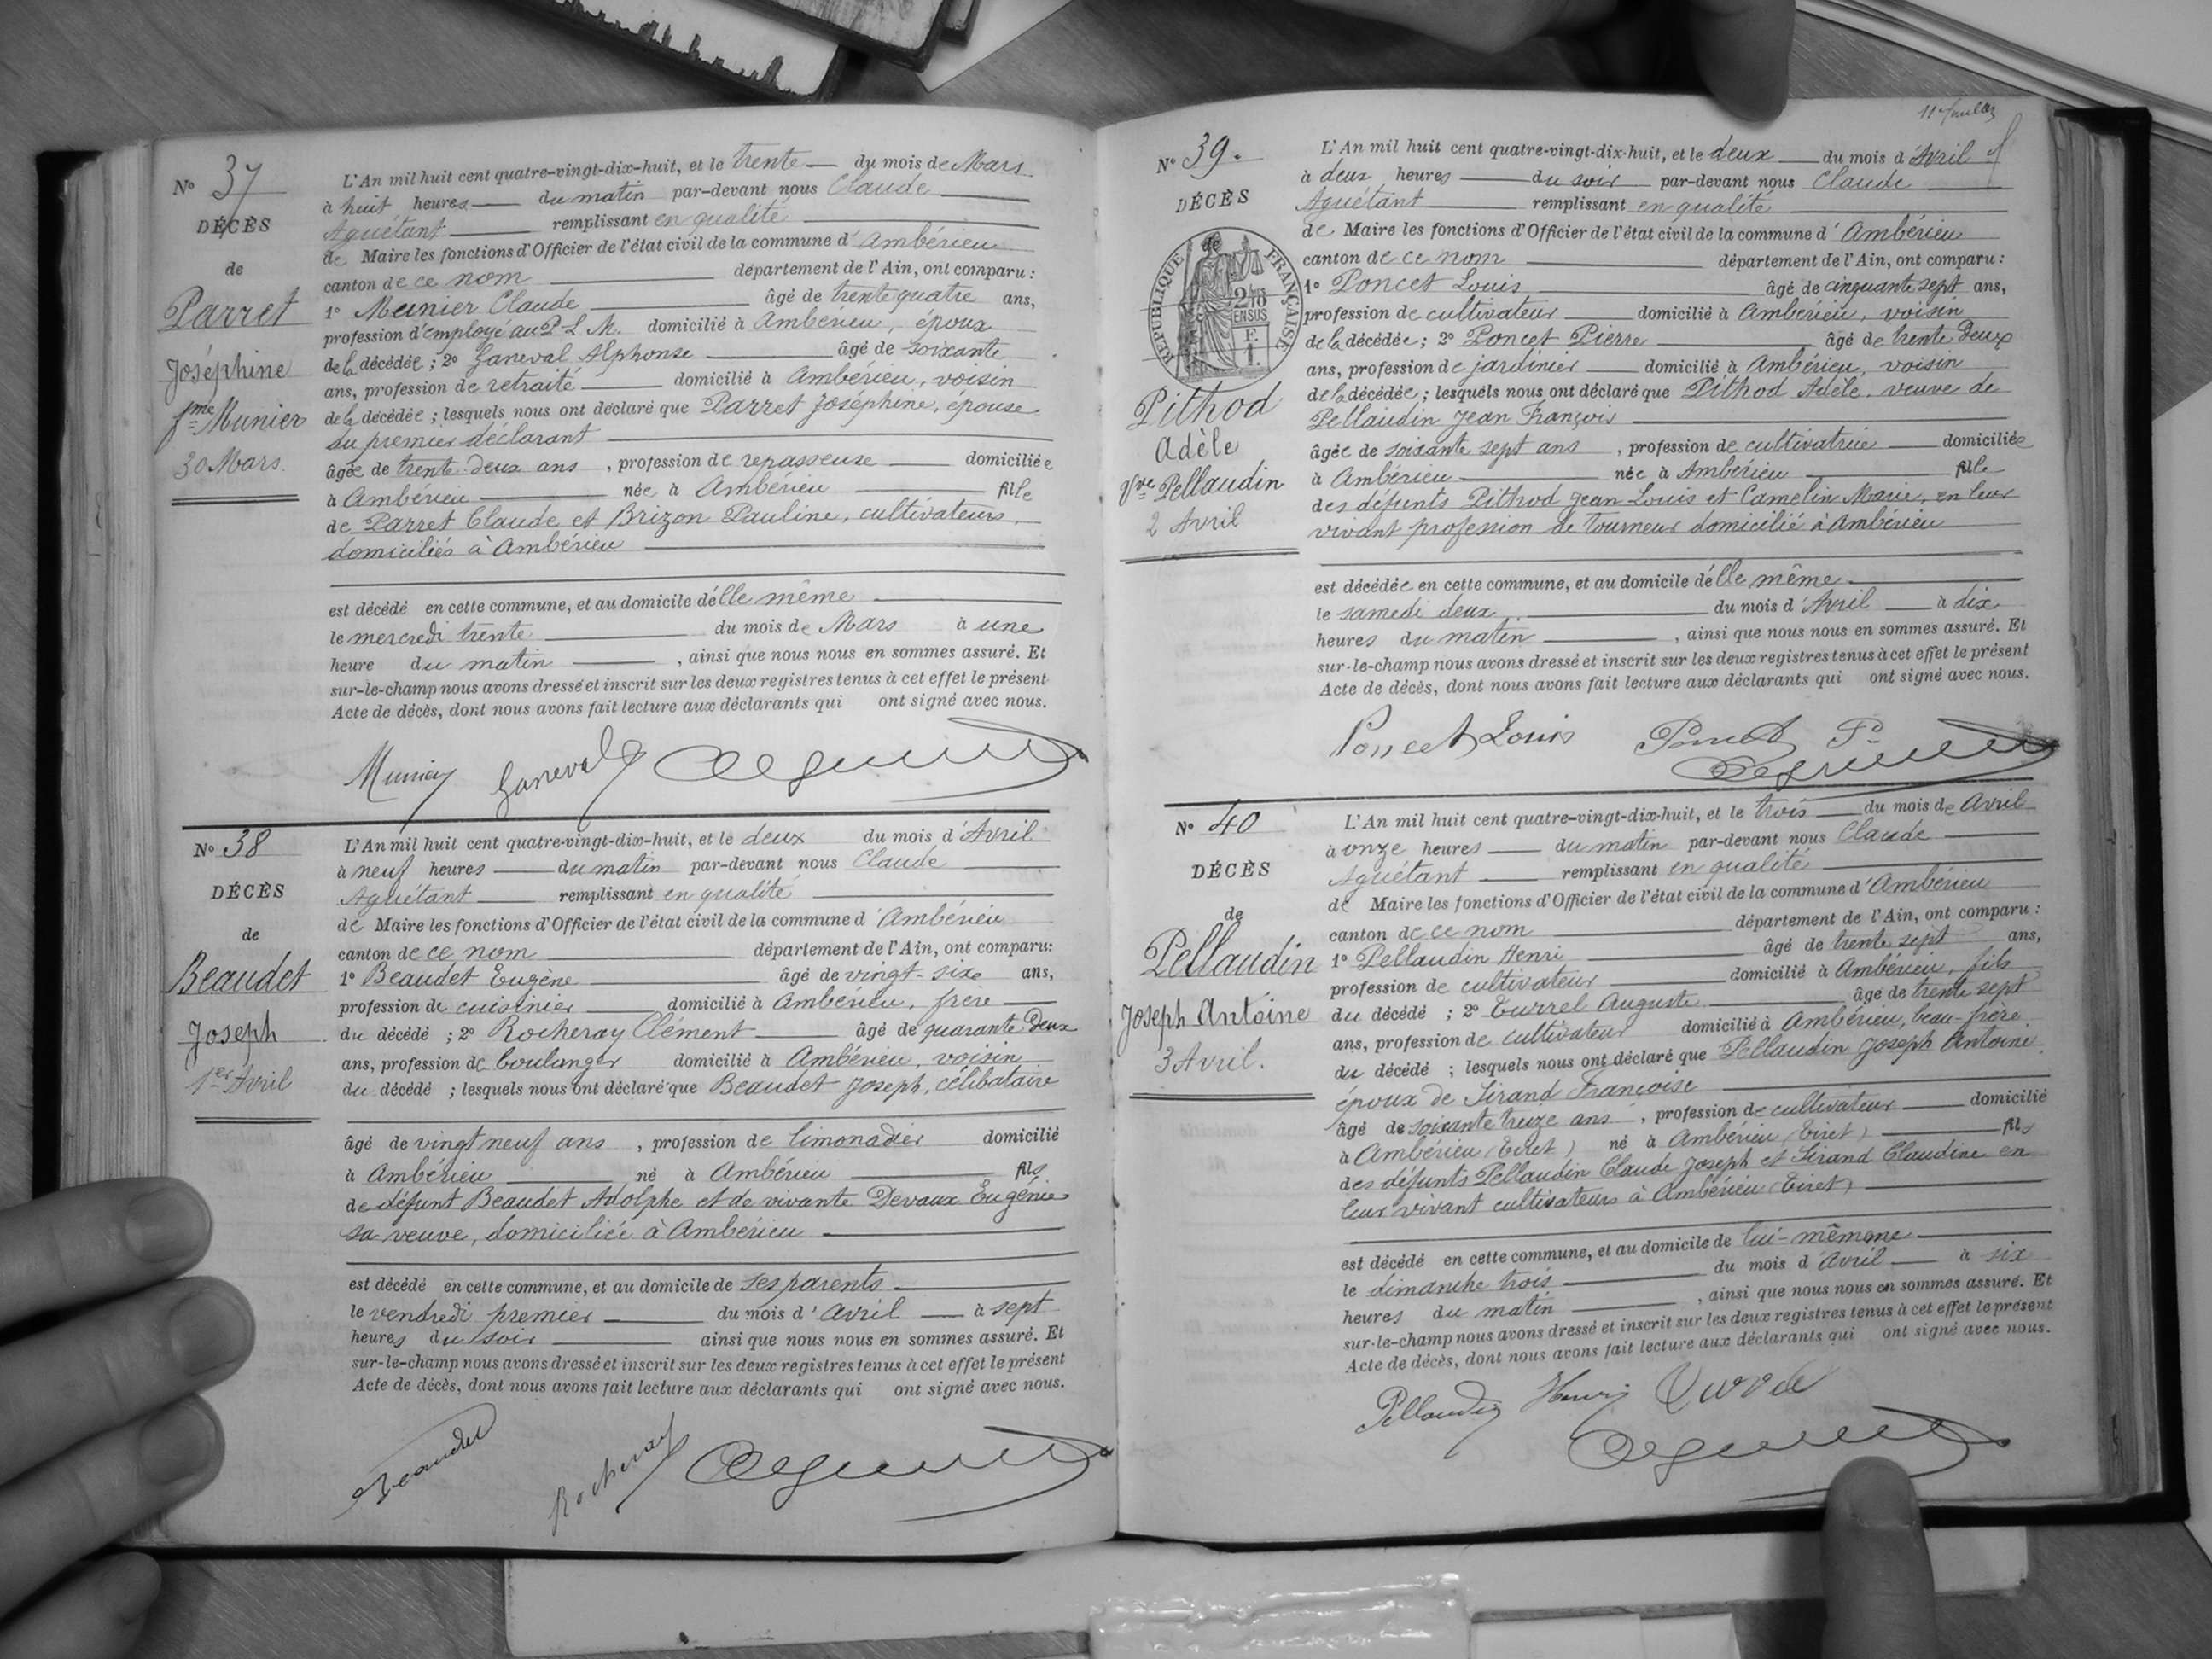 Nº 37
DÉCÈS
de
Parret
Joséphine
fme Munier
30 Mars.
L'An mil huit cent quatre-vingt-dix-huit, et le trente du mois de Mars
à huit heures du matin par-devant nous Claude
Aguétant remplissant en qualité
de Maire les fonctions d'Officier de l'état civil de la commune d'Ambérieu
canton de ce nom département de l'Ain, ont comparu :
1º Meunier Claude âgé de trente quatre ans,
profession d'employé au P. L. M. domicilié à Ambérieu, époux
de la décédée ; 2º Ganeval Alphonse âgé de soixante
ans, profession de retraité domicilié à Ambérieu, voisin
de la décédée ; lesquels nous ont déclaré que Parret Joséphine, épouse
du premier déclarant
âgée de trente deux ans, profession de repasseuse domiciliée
à Ambérieu née à Ambérieu fille
de Parret Claude et Brizon Pauline, cultivateurs,
domiciliés à Ambérieu
est décédé en cette commune, et au domicile d'elle même
le mercredi trente du mois de Mars à une
heure du matin, ainsi que nous nous en sommes assuré. Et
sur-le-champ nous avons dressé et inscrit sur les deux registres tenus à cet effet le présent
Acte de décès, dont nous avons fait lecture aux déclarants qui ont signé avec nous.
Munier Ganeval
Nº 38
DÉCÈS
de
Beaudet
Joseph
1er Avril
L'An mil huit cent quatre-vingt-dix-huit, et le deux du mois d'Avril
à neuf heures du matin par-devant nous Claude
Aguétant remplissant en qualité
de Maire les fonctions d'Officier de l'état civil de la commune d'Ambérieu
canton de ce nom département de l'Ain, ont comparu:
1º Beaudet Eugène âgé de vingt-six ans,
profession de cuisinier domicilié à Ambérieu, frère
du décédé ; 2º Rocheray Clément âgé de quarante deux
ans, profession de boulanger domicilié à Ambérieu, voisin
du décédé ; lesquels nous ont déclaré que Beaudet Joseph, célibataire
âgé de vingt neuf ans, profession de limonadier domicilié
à Ambérieu né à Ambérieu fils
de défunt Beaudet Adolphe et de vivante Devaux Eugénie
sa veuve, domiciliée à Ambérieu
est décédé en cette commune, et au domicile de ses parents
le vendredi premier du mois d'avril à sept
heures du soir ainsi que nous nous en sommes assuré. Et
sur-le-champ nous avons dressé et inscrit sur les deux registres tenus à cet effet le présent
Acte de décès, dont nous avons fait lecture aux déclarants qui ont signé avec nous.
Beaudet Rocheray
Nº 39.
DÉCÈS
de
RÉPUBLIQUE FRANÇAISE
Pithod
Adèle
Vve Pellaudin
2 Avril
L'An mil huit cent quatre-vingt-dix-huit, et le deux du mois d'Avril
à deux heures du soir par-devant nous Claude
Aguétant remplissant en qualité
de Maire les fonctions d'Officier de l'état civil de la commune d'Ambérieu
canton de ce nom département de l'Ain, ont comparu :
1º Poncet Louis âgé de cinquante sept ans,
profession de cultivateur domicilié à Ambérieu, voisin
de la décédée; 2º Poncet Pierre âgé de trente deux
ans, profession de jardinier domicilié à Ambérieu, voisin
de la décédée ; lesquels nous ont déclaré que Pithod Adèle, veuve de
Pellaudin Jean François
âgée de soixante sept ans, profession de cultivatrice domiciliée
à Ambérieu née à Ambérieu fille
des défunts Pithod Jean Louis et Camelin Marie, en leur
vivant profession de tourneur domicilié à Ambérieu
est décédée en cette commune, et au domicile d'elle même
le samedi deux du mois d'Avril à dix
heures du matin, ainsi que nous nous en sommes assuré. Et
sur-le-champ nous avons dressé et inscrit sur les deux registres tenus à cet effet le présent
Acte de décès, dont nous avons fait lecture aux déclarants qui ont signé avec nous.
Poncet Louis Poncet P.
Nº 40
DÉCÈS
de
Pellaudin
Joseph Antoine
3 Avril.
L'An mil huit cent quatre-vingt-dix-huit, et le trois du mois de Avril
à onze heures du matin par-devant nous Claude
Aguétant remplissant en qualité
de Maire les fonctions d'Officier de l'état civil de la commune d'Ambérieu
canton de ce nom département de l'Ain, ont comparu :
1º Pellaudin Henri âgé de trente sept ans,
profession de cultivateur domicilié à Ambérieu, fils
du décédé ; 2º Turrel Auguste âgé de trente sept
ans, profession de cultivateur domicilié à Ambérieu, beau-frère
du décédé ; lesquels nous ont déclaré que Pellaudin Joseph Antoine
époux de Sirand Françoise
âgé de soixante treize ans, profession de cultivateur domicilié
à Ambérieu (Tiret) né à Ambérieu (Tiret) fils
des défunts Pellaudin Claude Joseph et Sirand Claudine en
leur vivant cultivateurs à Ambérieu (Tiret)
est décédé en cette commune, et au domicile de lui-même
le dimanche trois du mois d'avril à six
heures du matin, ainsi que nous nous en sommes assuré. Et
sur-le-champ nous avons dressé et inscrit sur les deux registres tenus à cet effet le présent
Acte de décès, dont nous avons fait lecture aux déclarants qui ont signé avec nous.
Pellaudin Henri